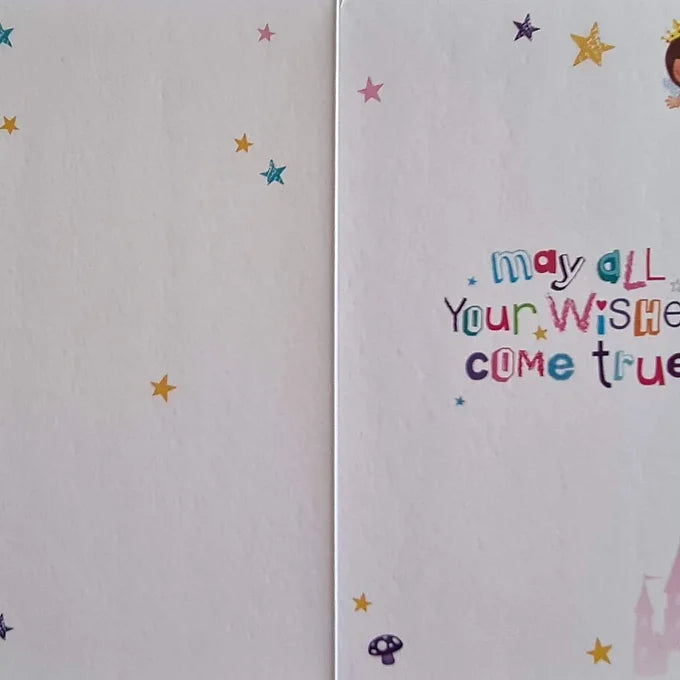 may all
Your Wishe
come true